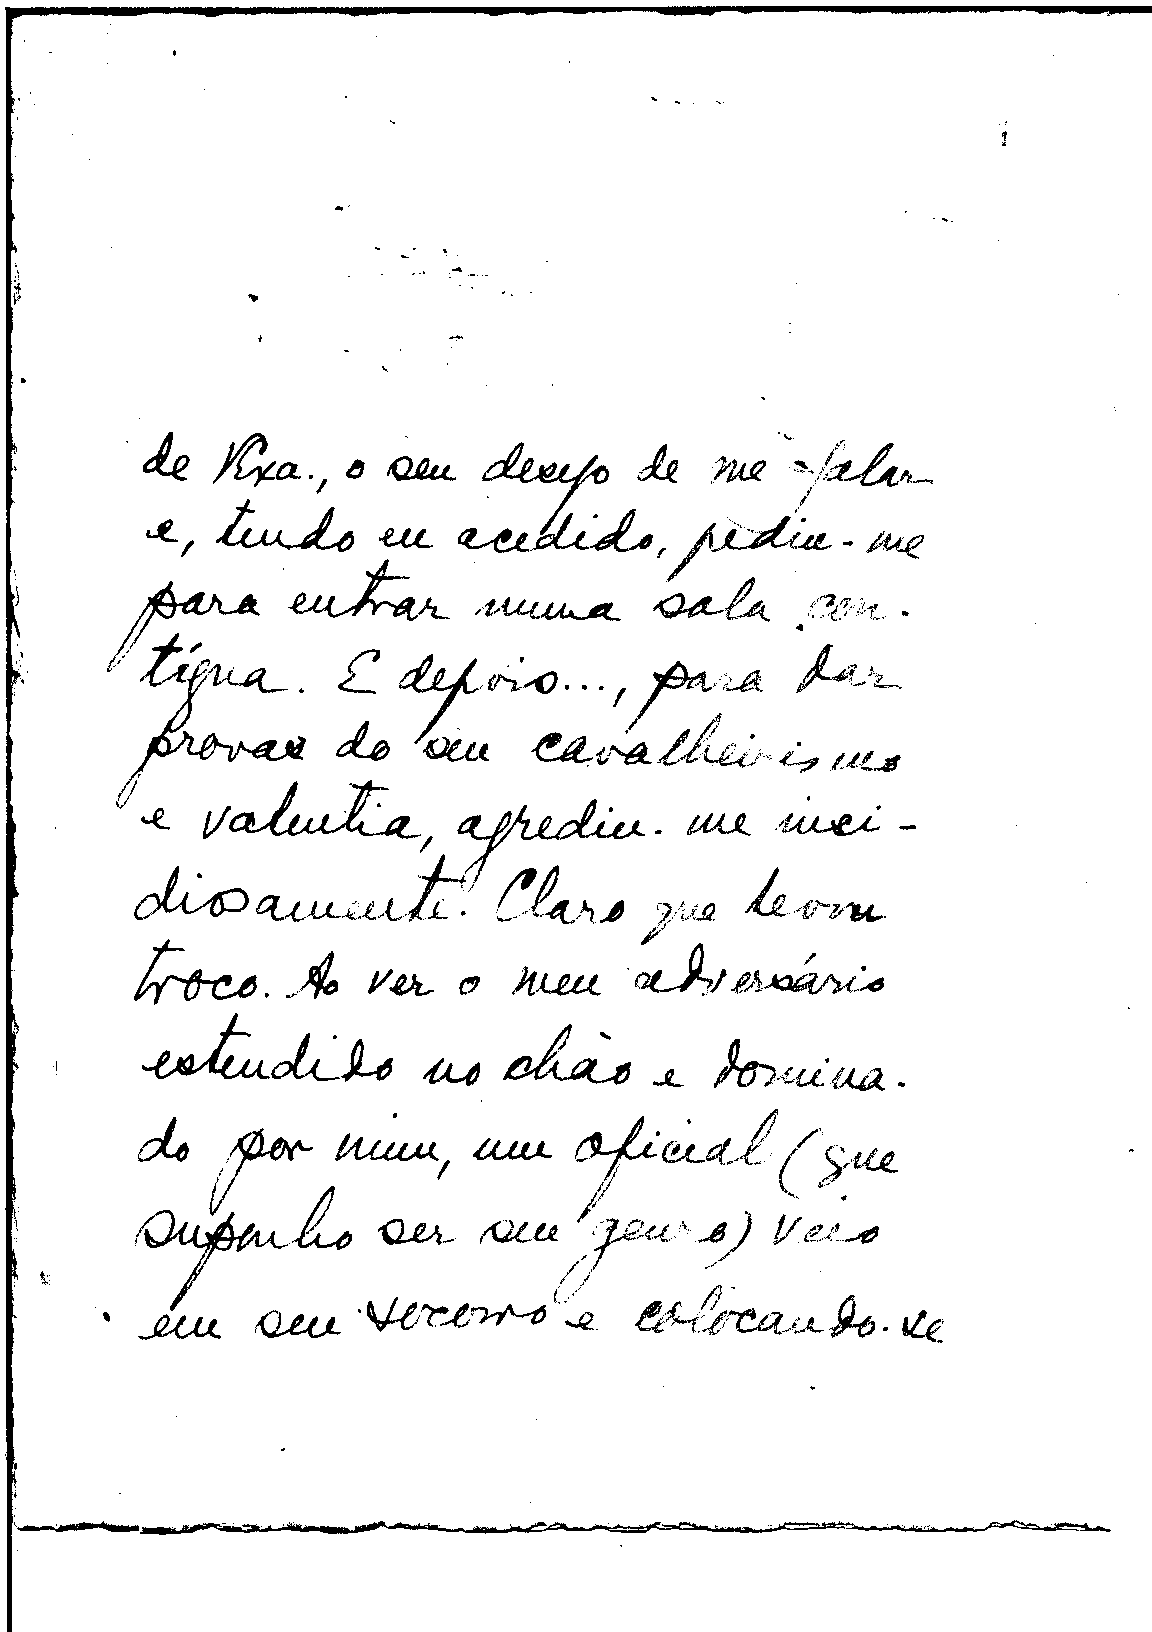 de V.Exa., o seu desejo de me falar
e, tendo eu acedido, pediu-me
para entrar numa sala con-
tígua. E depois..., para dar
provas do seu cavalheirismo
e valentia, agrediu-me insi-
diosamente. Claro que levou
troco. Ao ver o meu adversário
estendido no chão e domina-
do por mim, um oficial (que
suponho ser seu genro) veio
em seu socorro e colocando-se